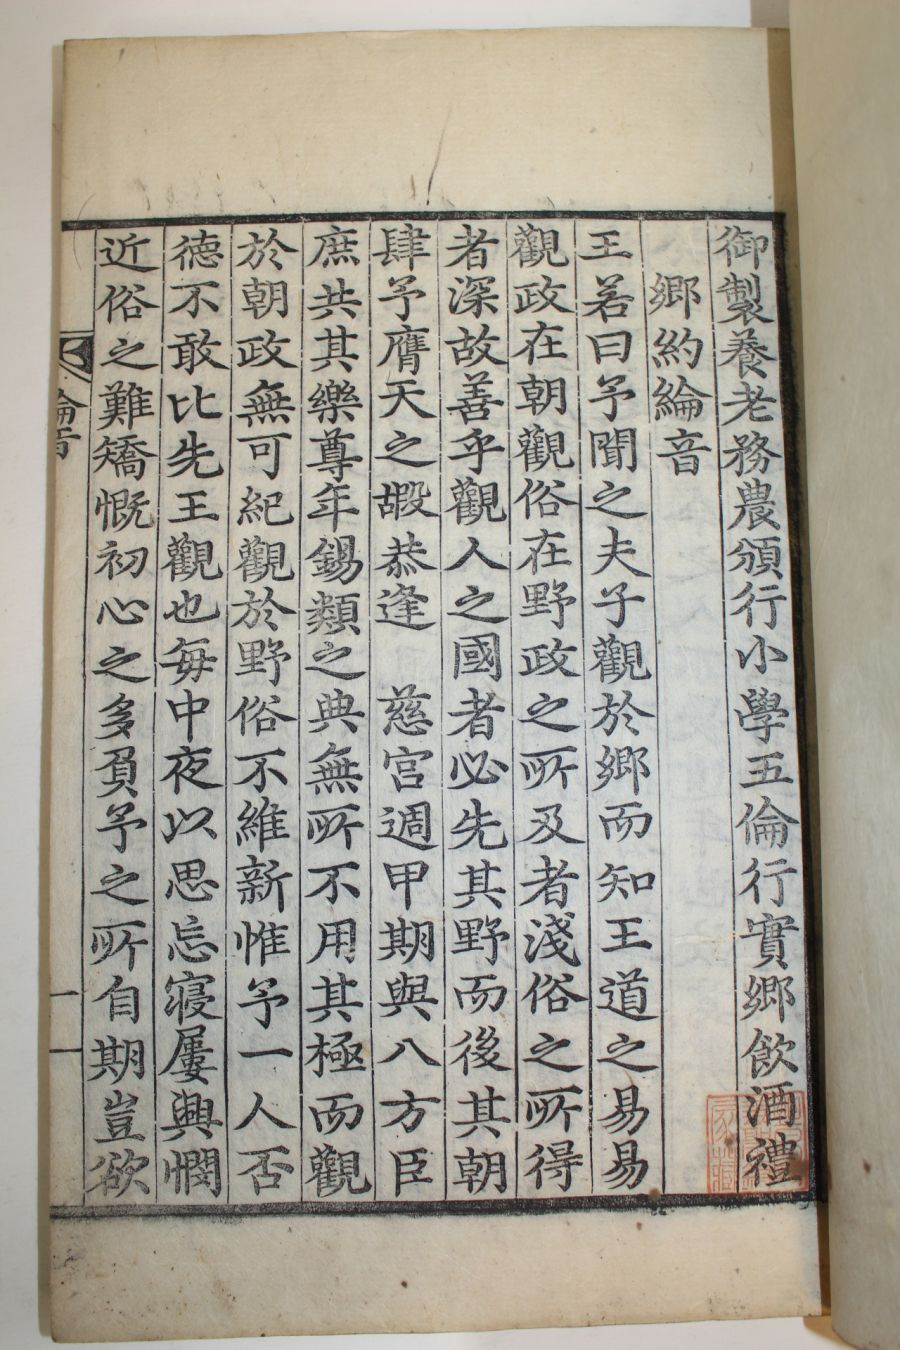 御製養老務農頒行小學五倫行實鄉飲酒禮
鄉約綸音
王若曰予聞之夫子觀於鄉而知王道之易易
觀政在朝觀俗在野政之所及者淺俗之所得
者深故善乎觀人之國者必先其野而後其朝
肆予膺天之嘏恭逢 慈宮週甲期與八方臣
庶共其樂尊年錫類之典無所不用其極而觀
於朝政無可紀觀於野俗不維新惟予一人否
德不敢比先王觀也每中夜以思忘寢屢興憫
近俗之難矯慨初心之多負予之所自期豈欲
綸音
一